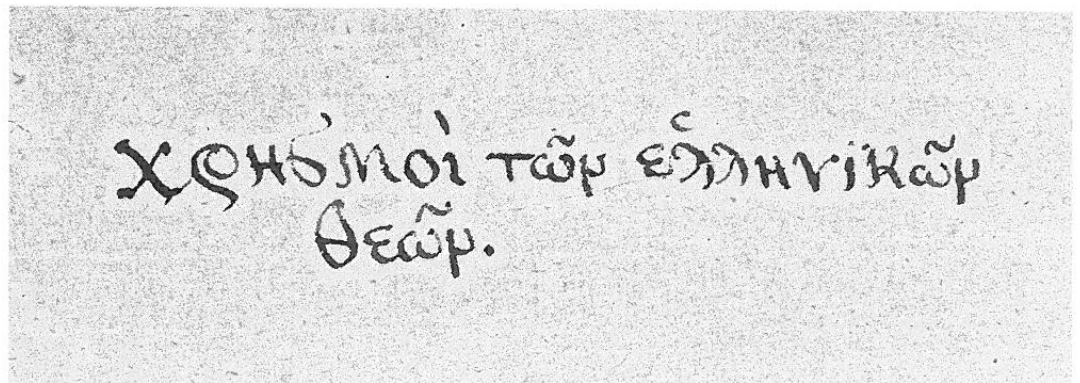 χρησμοὶ τῶν ἑλληνικῶν
θεῶν.